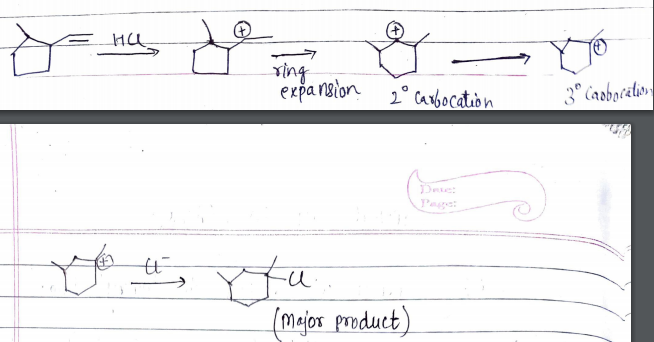 HCl
ring
expansion
2° Carbocation
3° Carbocation
Date:
Page:
Cl⁻
Cl
(Major product)